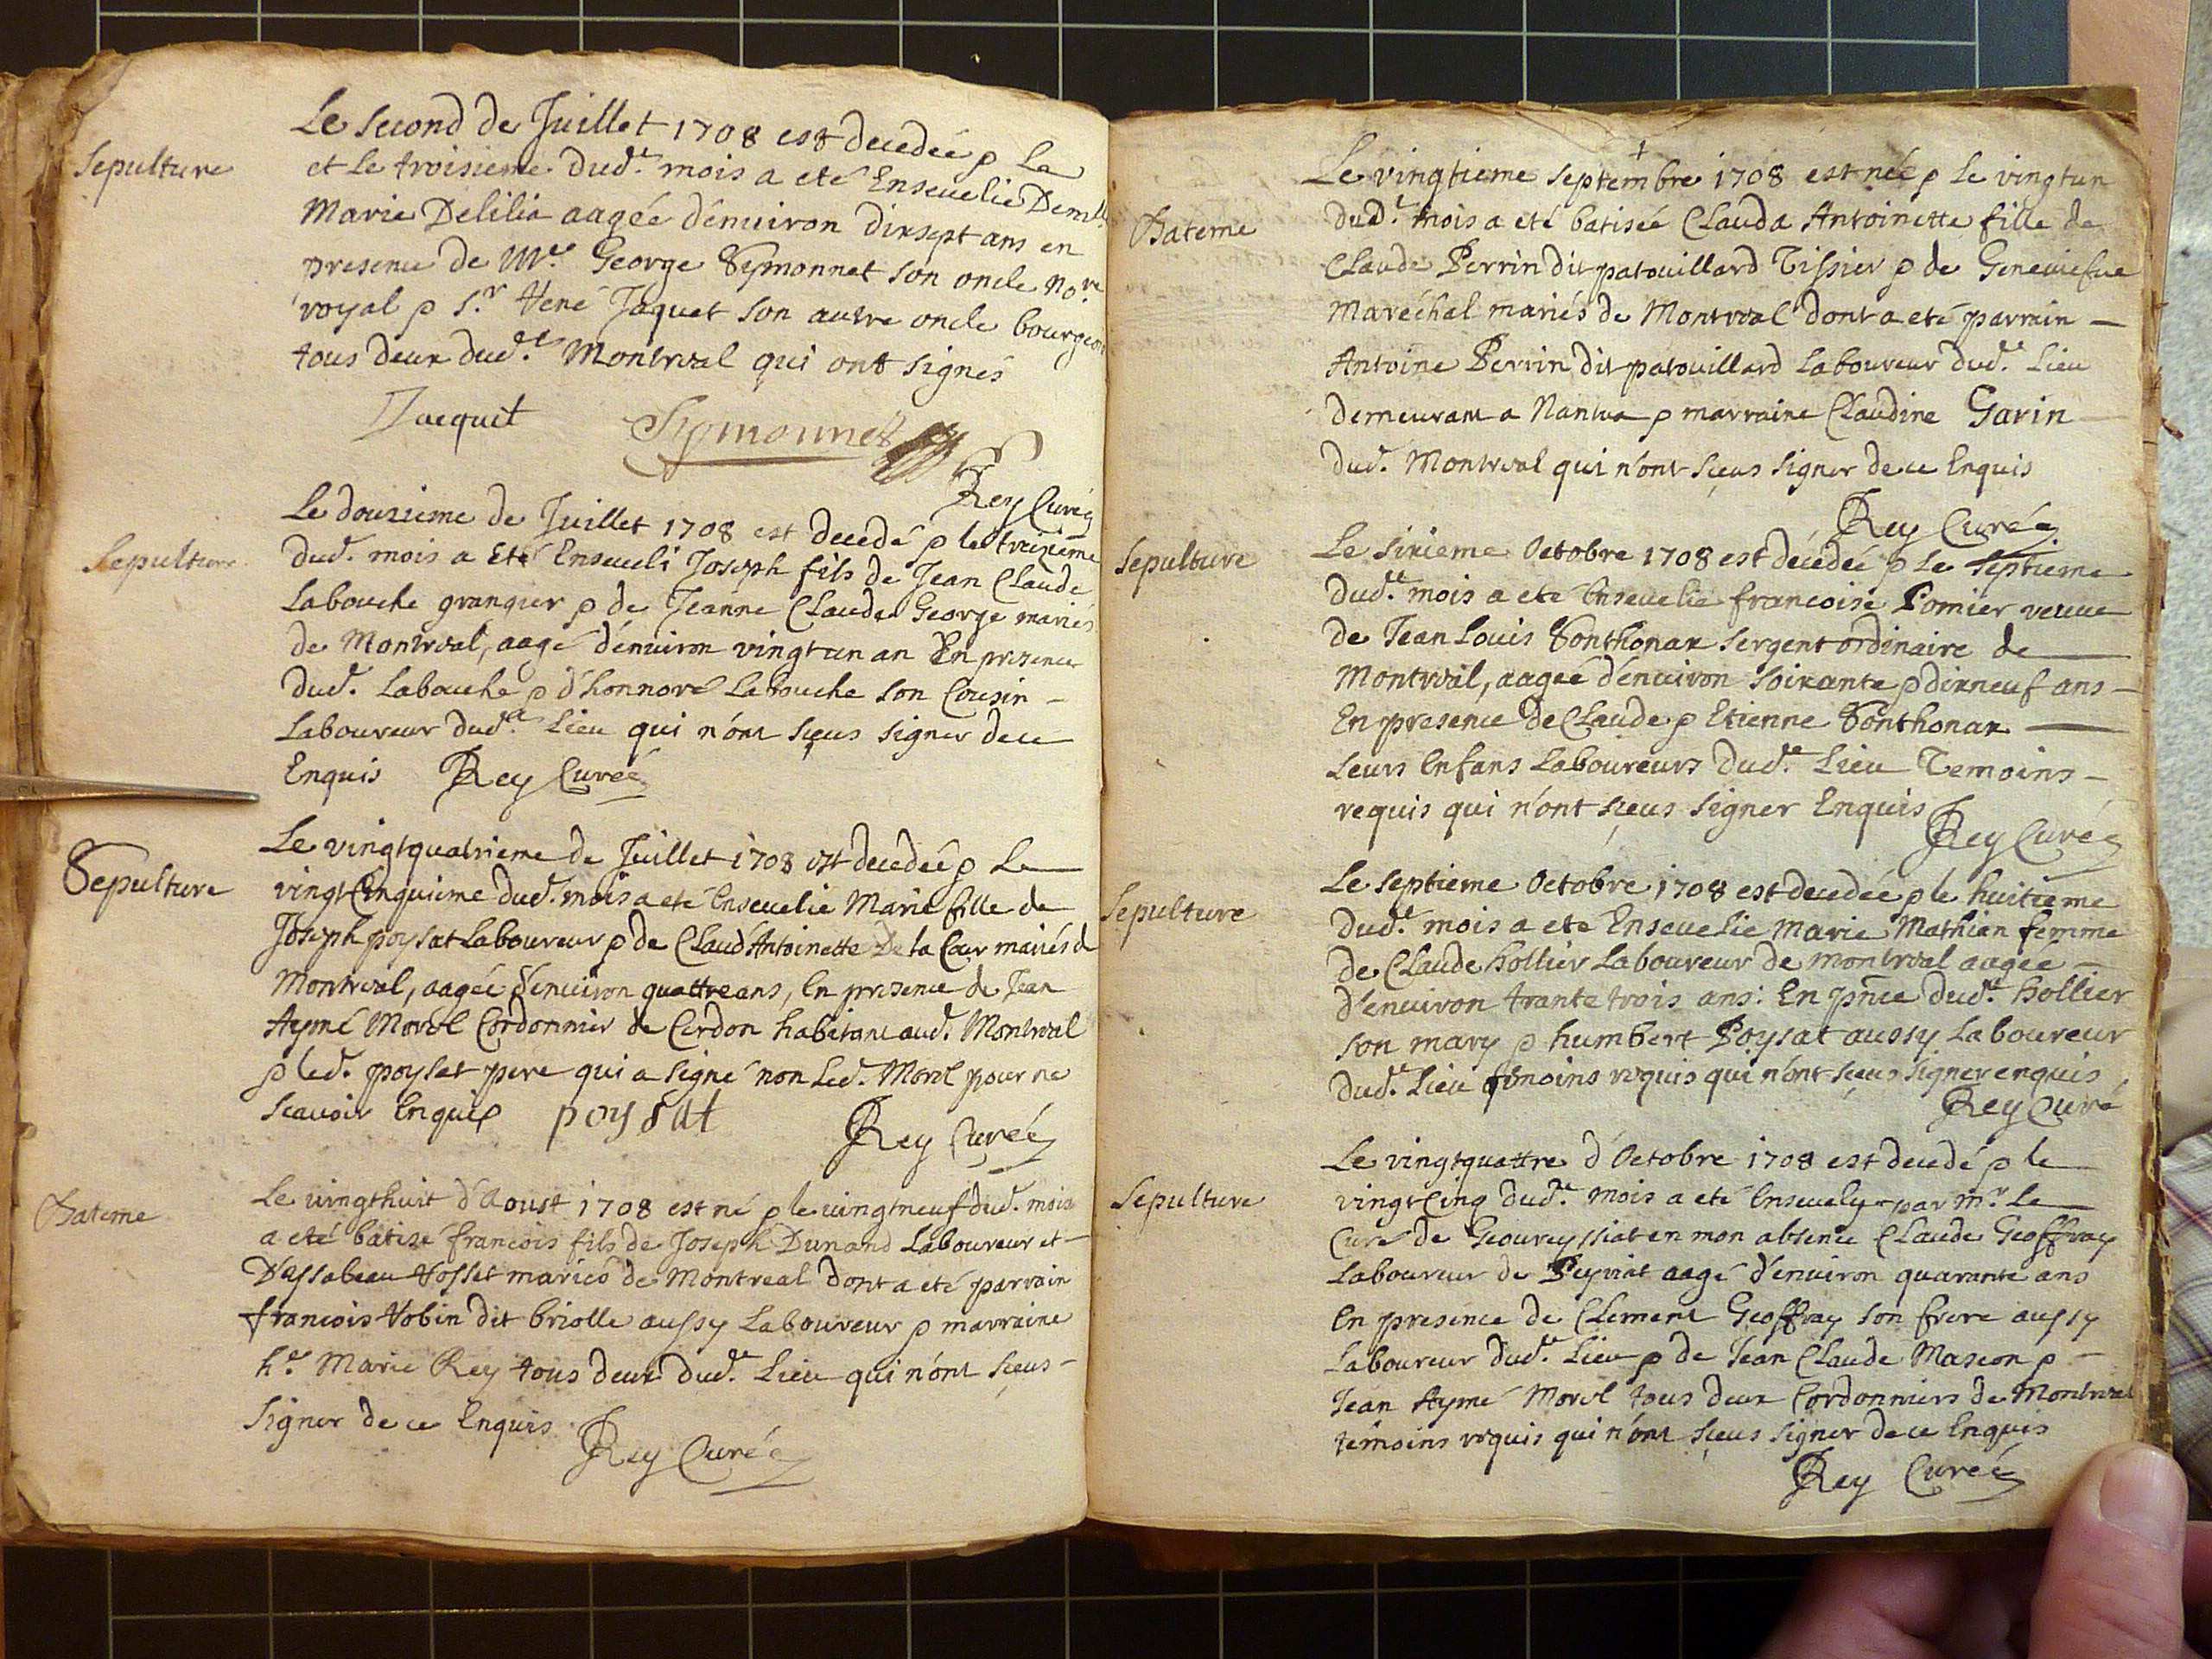 Sepulture
Le second de Juillet 1708 est decedée & Le
et Le troisieme dud.t mois a eté Enseuelie Dem.lle
Marie Delilia aagée d'enuiron dixsept ans en
presence de M.re George Symonnet son oncle no.re
royal & s.r René Jaquet son autre oncle bourgeois
tous deux dud.t Montreal qui ont signés
Jacquet Symonnet
Rey Curé
Sepulture
Le douzieme de Juillet 1708 est decedé & le treizieme
dud. mois a Eté Enseueli Joseph fils de Jean Claude
Labouche granger & de Jeanne Claude George mariés
de Montreal, aagé d'enuiron vingt un an En presence
dud. Labouche & d'honnoré Labouche son Cousin
Laboureur dud.t Lieu qui n'ont sçeus signer de ce
Enquis Rey Curé
Sepulture
Le vingtquatrieme de Juillet 1708 est decedée & Le
vingt Cinquieme dud. mois a eté Enseuelie Marie fille de
Joseph poysat Laboureur & de Claud'Antoinette De la Cour mariés de
Montreal, aagée d'enuiron quattre ans, En presence de Jean
Aymé Morel Cordonnier de Cerdon habitant aud. Montreal
& led. poysat pere qui a signé non Led. Morel pour ne
scauoir Enquis poysat
Rey Curé
Bateme
Le uingthuit d'Aoust 1708 est né & le uingtneuf dud. mois
a eté batisé francois fils de Joseph Dunand Laboureur et
D'yssabeau Rosset mariés de Montreal dont a eté parrain
francois Robin dit briolle aussy Laboureur & marraine
h.e Marie Rey tous deux dud.t Lieu qui n'ont sçeus
signer de ce Enquis
Rey Curé
Bateme
Le vingtieme septembre 1708 est née & Le vingtun
dud.t mois a eté batisée Clauda Antoinette fille de
Claude Perrin dit patouillard Tissier & de Geneuiefue
Maréchal mariés de Montreal dont a eté parrain
Antoine Perrin dit patouillard Laboureur dud.t Lieu
demeurant a Nantua & marraine Claudine Garin
dud. Montreal qui n'ont sçeus signer de ce Enquis
Rey Curé
Sepulture
Le sixieme Octobre 1708 est décedée & Le septieme
dud.t mois a eté Enseuelie francoise Pomier veuue
de Jean Louis Sonthonax sergent ordinaire de
Montreal, aagée d'enuiron soixante & dixneuf ans
En presence de Claude & Etienne Sonthonax
Leurs Enfans Laboureurs dud.t Lieu Temoins
requis qui n'ont sçeus signer Enquis
Rey Curé
Sepulture
Le septieme Octobre 1708 est decedée & le huitieme
dud.t mois a ete Enseuelie Marie Mathian femme
de Claude hollier Laboureur de montreal aagée
d'enuiron trante trois ans: En pn̄ce dud.t hollier
son mary & humbert Poysat aussy Laboureur
dud.t Lieu temoins requis qui n'ont sçeus signer enquis
Rey Curé
Sepulture
Le vingtquattre d'Octobre 1708 est decedé & le
vingt Cinq dud.t mois a eté Enseuely par m.r Le
Curé de Geoureyssiat en mon absence Claude Geoffray
Laboureur de Peyriat aagé d'enuiron quarante ans
En presence de Clement Geoffray son frere aussy
Laboureur dud.t Lieu & de Jean Claude Masson &
Jean Aymé Morel tous deux Cordonniers de Montreal
temoins requis qui n'ont sçeus signer de ce Enquis
Rey Curé